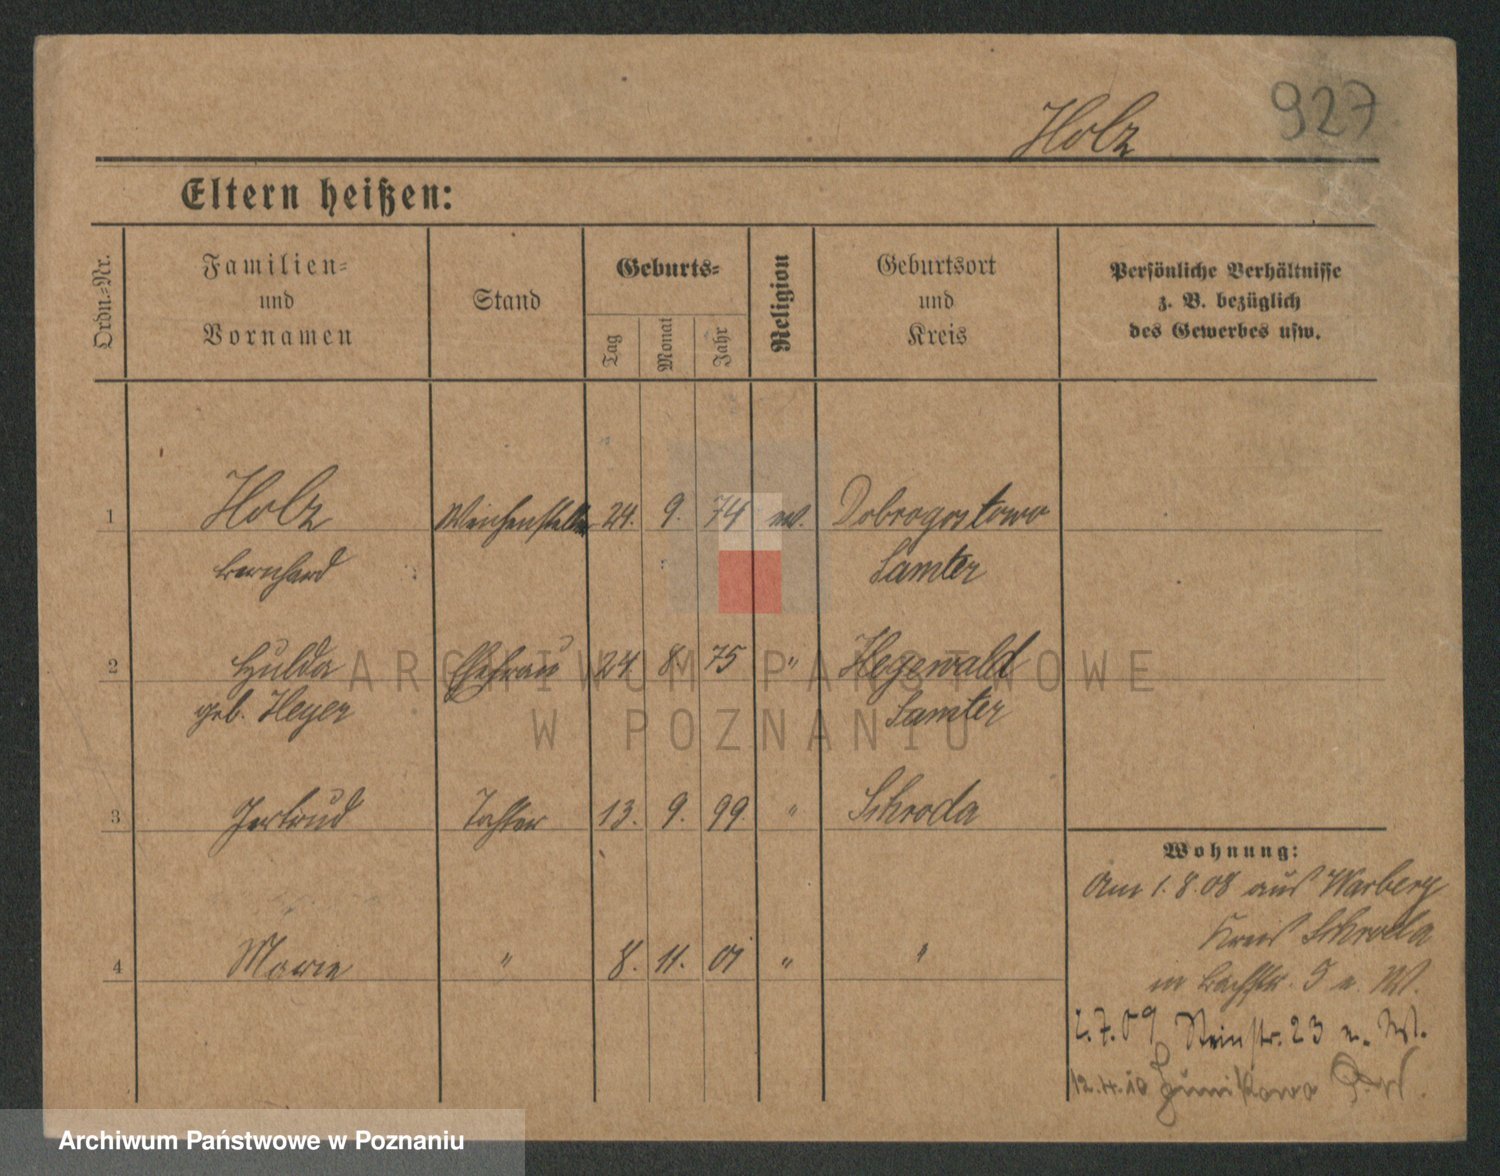 927
Holz
Eltern heißen:
Ordn.-Nr.
Familien-
und
Vornamen
Stand
Geburts-
Tag
Monat
Jahr
Religion
Geburtsort
und
Kreis
Persönliche Verhältnisse
z. B. bezüglich
des Gewerbes usw.
1 Holz Weichensteller 24. 9. 74 ev. Dobrogostowo
Bernhard Samter
2 Hulda Ehefrau 24. 8. 75 " Hegewald
geb. Heyer Samter
3 Gertrud Tochter 13. 9. 99 " Schroda
4 Marie " 8. 11. 01 " "
Wohnung:
Am 1.8.08 aus Warberg
Kreis Schroda
in Bachstr. 5 a. W.
2.7.09 Steinstr. 23
12.4.10 Junikowo
ARCHIWUM PAŃSTWOWE
W POZNANIU
Archiwum Państwowe w Poznaniu